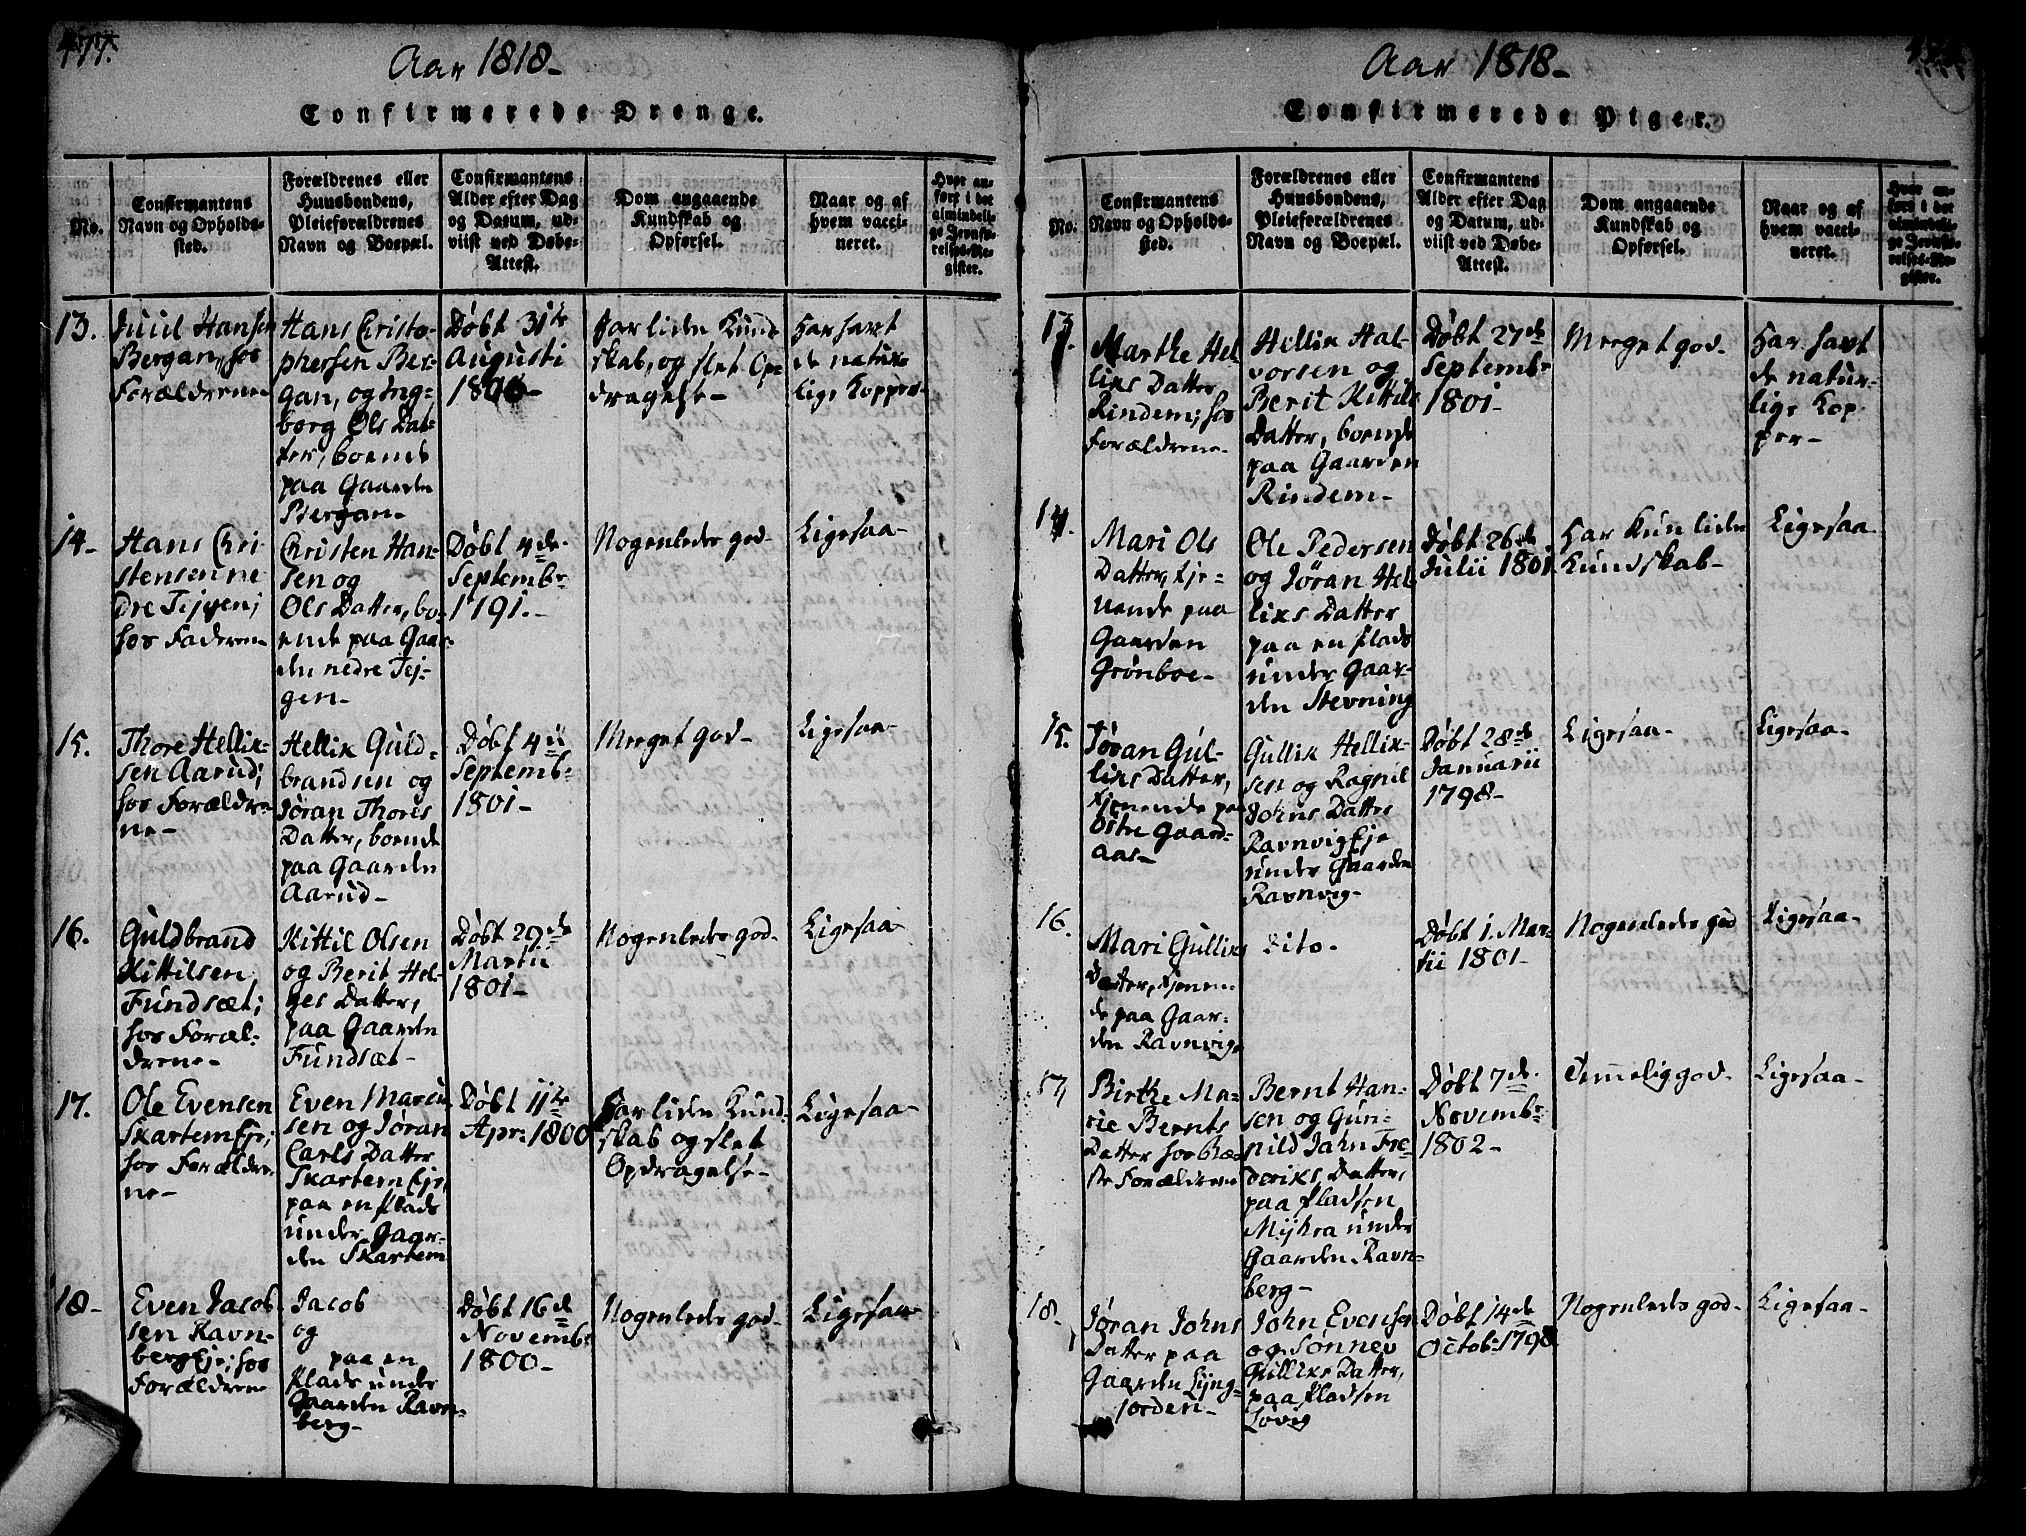 477.
Aar 1818-
Confirmerede Drenge.
No.
Confirmantens
Navn og Opholds-
sted.
Forældrenes eller
Huusbondens,
Pleieforældrenes
Navn og Boepæl.
Confirmantens
Alder efter Dag
og Datum, ud-
viist ved Døbe-
Attest.
Dom angaaende
Kundskab og
Opførsel.
Naar og af
hvem vacci-
neret.
Hvor an-
ført i det
almindeli-
ge Jevnfø-
relses-Re-
gister.
13.
Juul Hansen
Bergan, hos
Forældrene-
Hans Christo-
phersen Ber-
gan, og Ing-
borg Ols Dat-
ter, boende
paa Gaarden
Bergan-
Døbt 31te
Augusti
Har liden Kund
skab, og slet Op-
dragelse-
Har havt
de natur-
lige Kopper-
14-
Hans Chri-
stensen ne
dre Tejgen;
hos Faderen-
Christen Han-
sen og
Ols Datter, bo-
ende paa Gaar-
den nedre Tej-
gen-
Døbt 4de
Septembr
1791.-
Nogenledes god-
Ligesaa-
15.
Thore Hellik-
sen Aarud;
hos Forældre-
ne-
Hellik Guld-
brandsen og
Jøran Thores
Datter, boende
paa Gaarden
Aarud-
Døbt 4de
Septembr
1801-
Meeget god-
Ligesaa-
16.
Guldbrand
Kittilsen
Fundsæt;
hos Foræl-
drene-
Kittil Olsen
og Berit Hel-
ges Datter,
paa Gaarden
Fundsæt-
Døbt 29de
Martii
1801-
Nogenledes god-
Ligesaa-
17.
Ole Evensen
Skartem Eje;
hos Forældre-
ne-
Even Marcu
sen og Jøran
Carls Datter
Skartem Eje,
paa en Plads
under Gaar-
den Skartem
Døbt 11te
Apr: 1800
Har liden Kund-
skab og slet
Opdragelse-
Ligesaa-
18-
Even Jacob
sen Ravn-
berg Eje; hos
Forældrene
Jacob
og
paa en
Plads under
Gaarden Ravn-
berg-
Døbt 16de
Novembr
1800-
Nogenledes god-
Ligesaa-
Aar 1818-
Confirmerede Piger.
No.
Confirmantens
Navn og Opholds-
sted.
Forældrenes eller
Huusbondens,
Pleieforældrenes
Navn og Boepæl.
Confirmantens
Alder efter Dag
og Datum, ud-
viist ved Døbe-
Attest.
Dom angaaende
Kundskab og
Opførsel.
Naar og af
hvem vacci-
neret.
Hvor an-
ført i det
almindeli-
ge Jevnfø-
relses-Re-
gister.
13.
Marthe Hel
liks Datter
Rindem; hos
Forældrene-
Hellik Hal-
vorsen og
Berit Kittils
Datter, boende
paa Gaarden
Rindem-
Døbt 27de
Septembr
1801-
Meeget god-
Har havt
de natur-
lige Kop
per-
14.
Mari Ols
Datter, tje-
nende paa
Gaarden
Grønboe-
Ole Pedersen
og Jøran Hel-
liks Datter
paa en Plads
under Gaar-
den Stevning
Døbt 26de
Julii 1801.
Har kun liden
Kundskab-
Ligesaa-
15.
Jøran Gul-
liks Datter,
tjenende paa
Østre Gaard-
aas-
Gullik Hellik-
sen og Ragnil
Johns Datter
Ravnvig Eje
under Gaarden
Ravnvig-
Døbt 28de
Januarii
1798-
Ligesaa-
Ligesaa-
16.
Mari Gulliks
Datter, tjenen-
de paa Gaar-
den Ravnvig-
Dito-
Døbt 1. Mar-
tii 1801-
Nogenledes god
Ligesaa-
17
Birthe Ma-
rie Bernts
Datter hos
Forældrene
Bernt Han-
sen og Gun-
nild Jahn Fre-
deriks, Datter,
paa Pladsen
Myhra under
Gaarden Ravn-
berg-
Døbt 7de
Novembr
1802-
Temelig god-
Ligesaa-
18-
Jøran Johns
Datter paa
Gaarden Lyng-
jorden-
John Evensen
og Sønnev
Gulliks Datter,
paa Pladsen
Løvig
Døbt 14de
Octob: 1798
Nogenledes god-
Ligesaa-